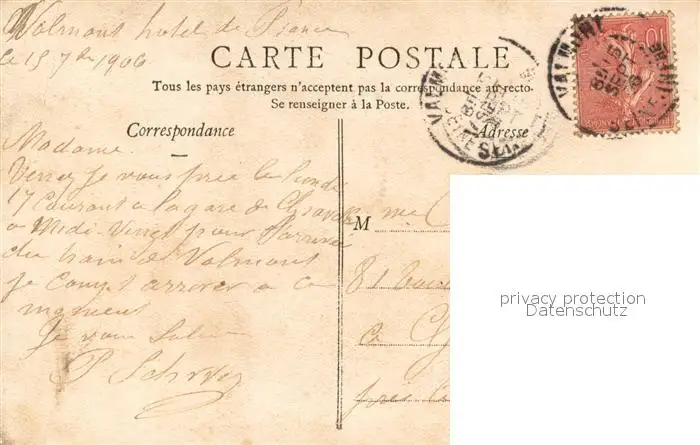 Valmont hotel de France
le 15 7bre 1906
CARTE POSTALE
Tous les pays étrangers n'acceptent pas la correspondance au recto-
Se renseigner à la Poste.
Correspondance
Adresse
Madame
Venez je vous prie le lundi
17 courant a la gare de
a Midi Vingt pour l'arrivée
du train de Valmont
je compt arriver a ce
moment
Je vous Salue
P.
M me
81
a
10
VALMONT
SEINE
privacy protection
Datenschutz